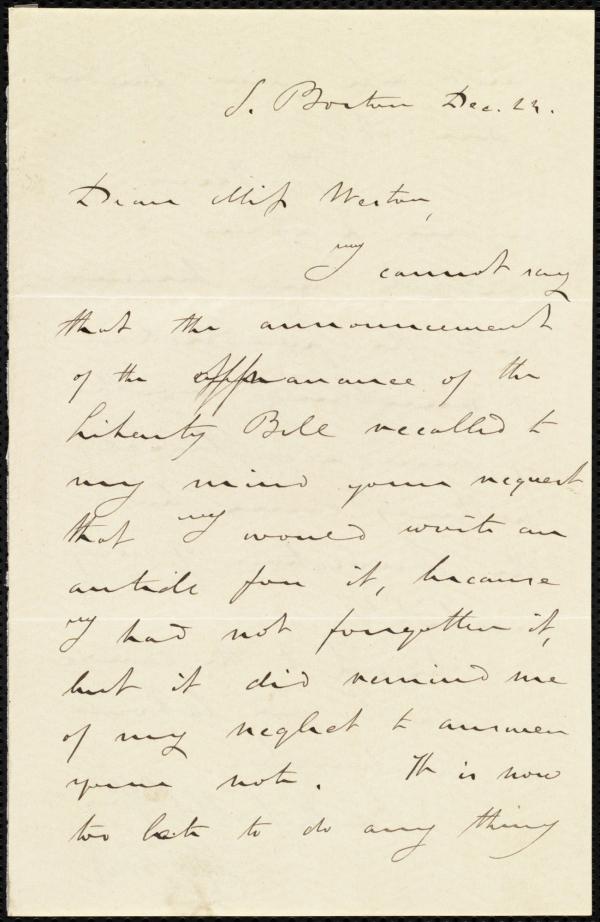 S. Boston Dec. 24.
Dear Miss Weston,
I cannot say
that the announcement
of the appearance of the
Liberty Bell recalled to
my mind your request
that I would write an
article for it, because
I had not forgotten it,
but it did remind me
of my neglect to answer
your note. It is now
too late to do any thing